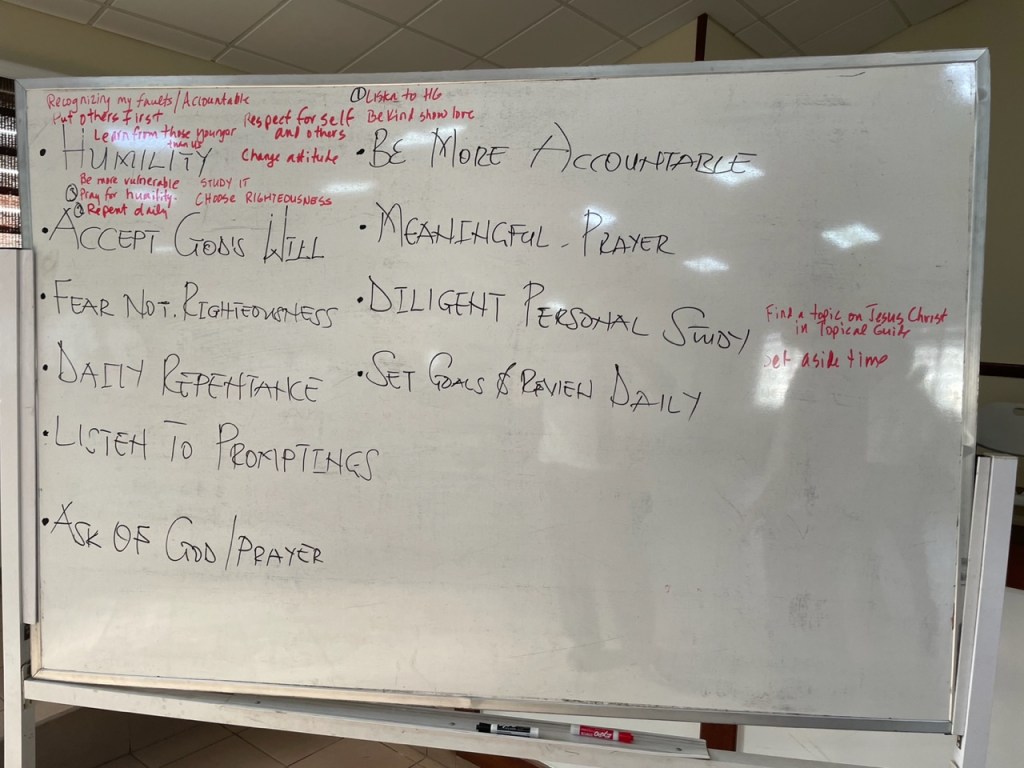 Recognizing my faults/Accountable
Put others First
Learn from those younger
than us
Respect for self
and others
Change attitude
① Listen to HG
Be kind show love
• HUMILITY
Be more vulnerable
STUDY IT
③ Pray for humility.
CHOOSE RIGHTEOUSNESS
② Repent daily
• ACCEPT GOD'S WILL
• FEAR NOT. RIGHTEOUSNESS
• DAILY REPENTANCE
• LISTEN TO PROMPTINGS
• ASK OF GOD/PRAYER
• BE MORE ACCOUNTABLE
• MEANINGFUL - PRAYER
• DILIGENT PERSONAL STUDY
Find a topic on Jesus Christ
in Topical Guide
Set aside time
• SET GOALS & REVIEW DAILY
EXPO